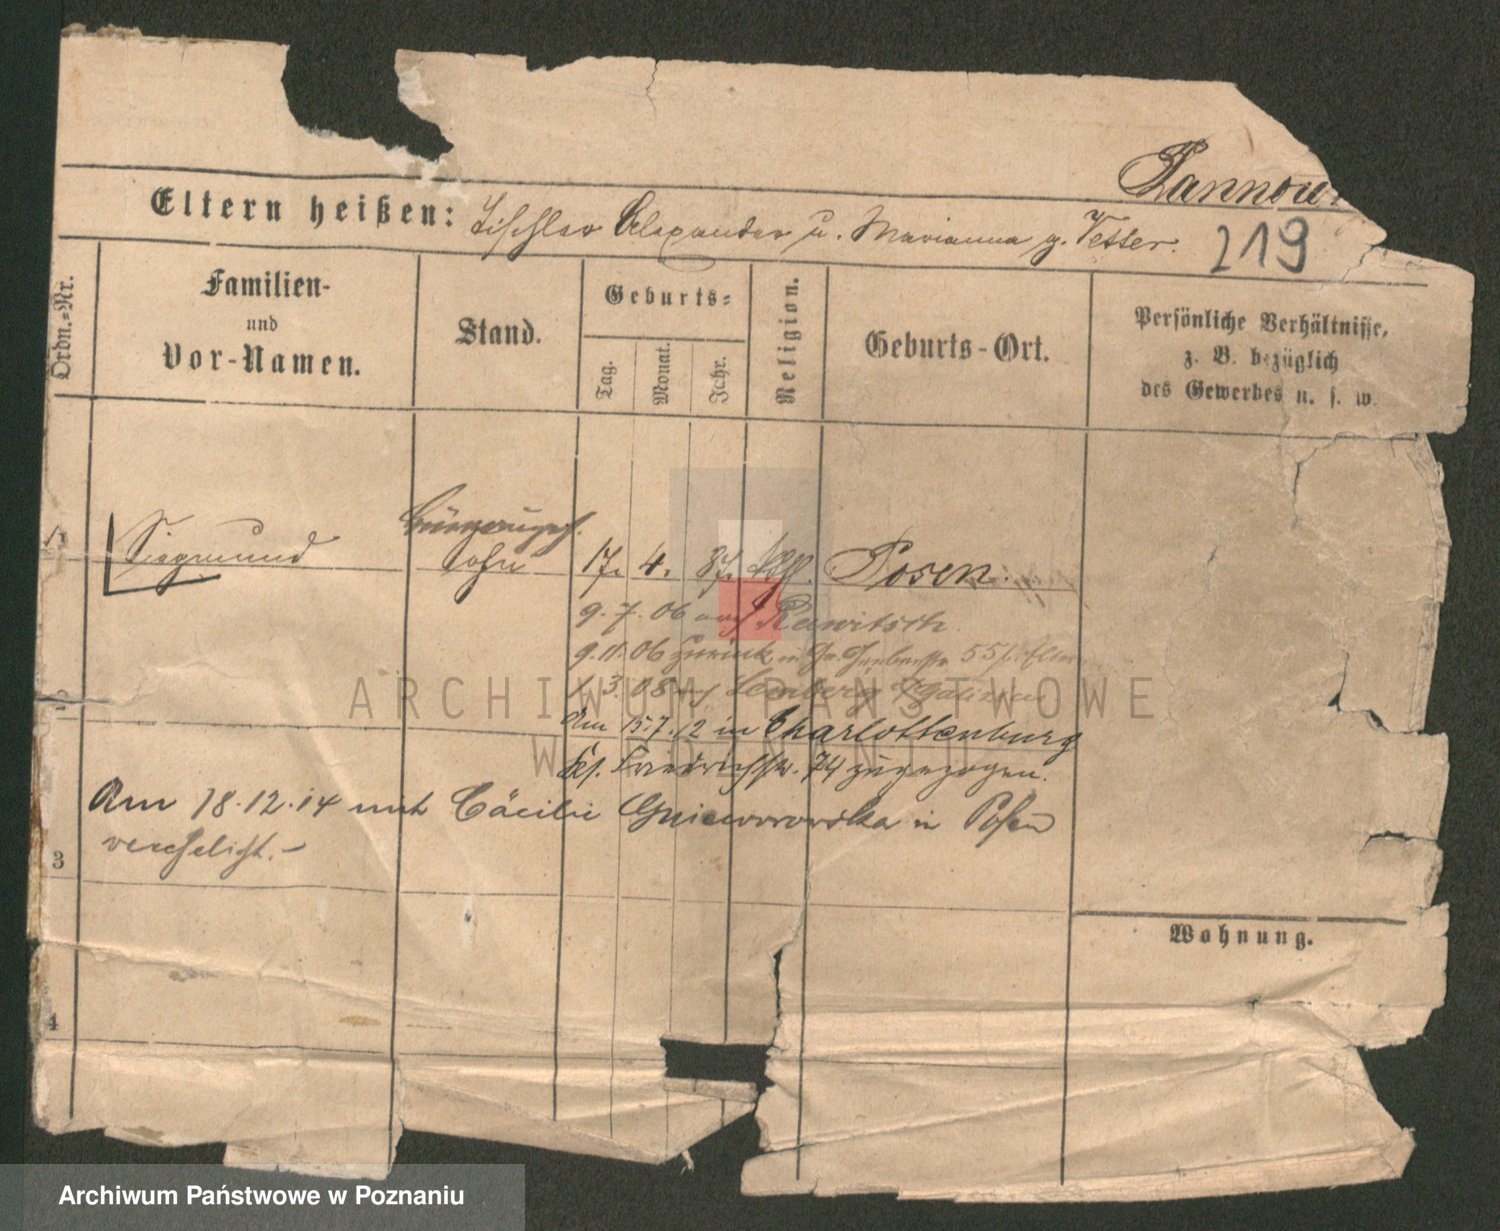 Pannow
Eltern heißen: Tischler Alexander u. Marianna g. Vetter.
219
Ordn.-Nr.
Familien-
und
Vor-Namen.
Stand.
Geburts-
Tag.
Monat.
Jahr.
Religion.
Geburts-Ort.
Persönliche Verhältnisse,
z. B. bezüglich
des Gewerbes u. s. w.
1 Siegmund Sohn 17. 4. 87. kth. Posen.
9.7.06 nach Rawitsch
9.11.06 zurück 55 Eltern
1.3.08 Lemberg Galizien
2
Am 15.7.12 in Charlottenburg
Friedrichstr. 74 zugezogen.
Am 18.12.14 mit Cäcilie Gnieworowska in Posen
verehelicht.-
3
Wohnung.
4
ARCHIWUM PAŃSTWOWE
W POZNANIU
Archiwum Państwowe w Poznaniu